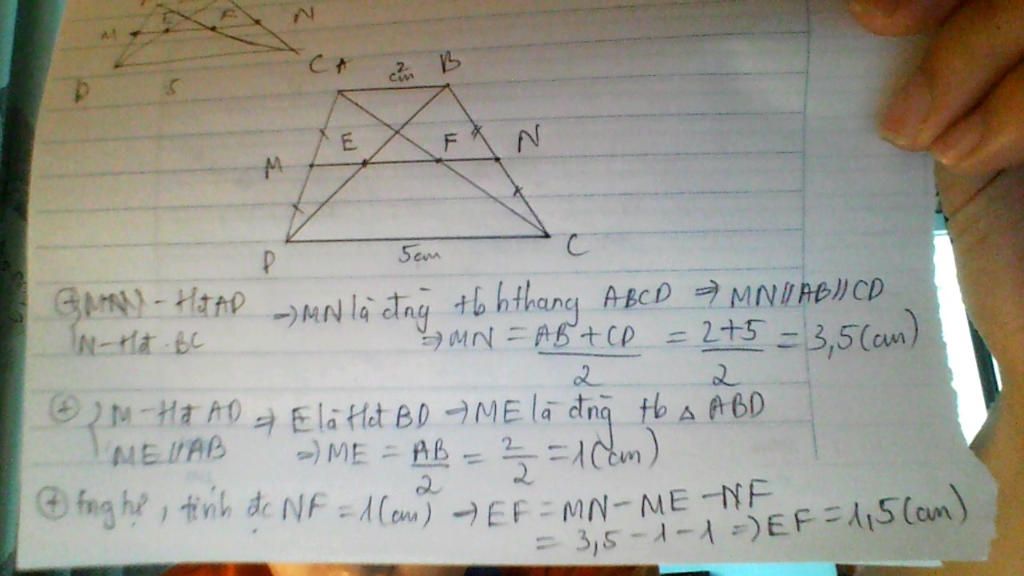 M E F N
D 5 C
A 2 cm B
M E F N
D 5cm C
+) M - tđ AD ⇒ MN là đng tb hthang ABCD ⇒ MN // AB // CD
N - tđ BC ⇒ MN = (AB + CD)/2 = (2+5)/2 = 3,5 (cm)
+) { M - tđ AD ⇒ E là tđ BD ⇒ ME là đng tb Δ ABD
ME // AB ⇒ ME = AB/2 = 2/2 = 1 (cm)
+) Tng tự, tính đc NF = 1 (cm) → EF = MN - ME - NF
= 3,5 - 1 - 1 ⇒ EF = 1,5 (cm)